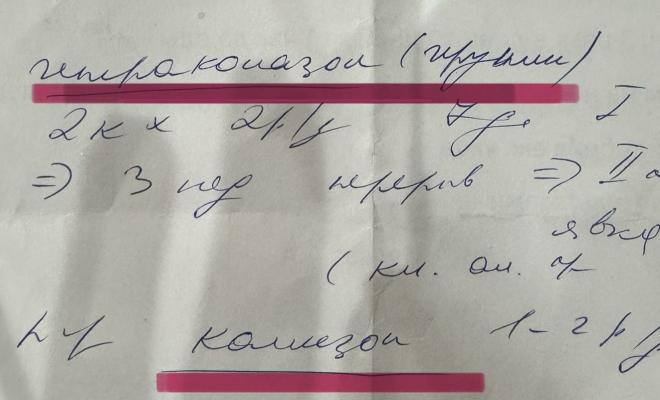 итраконазол (ирунин)
2к x 2р/д 7д. I
=> 3 нед перерыв => II
явка
( кл. ан.
1-2 р/д